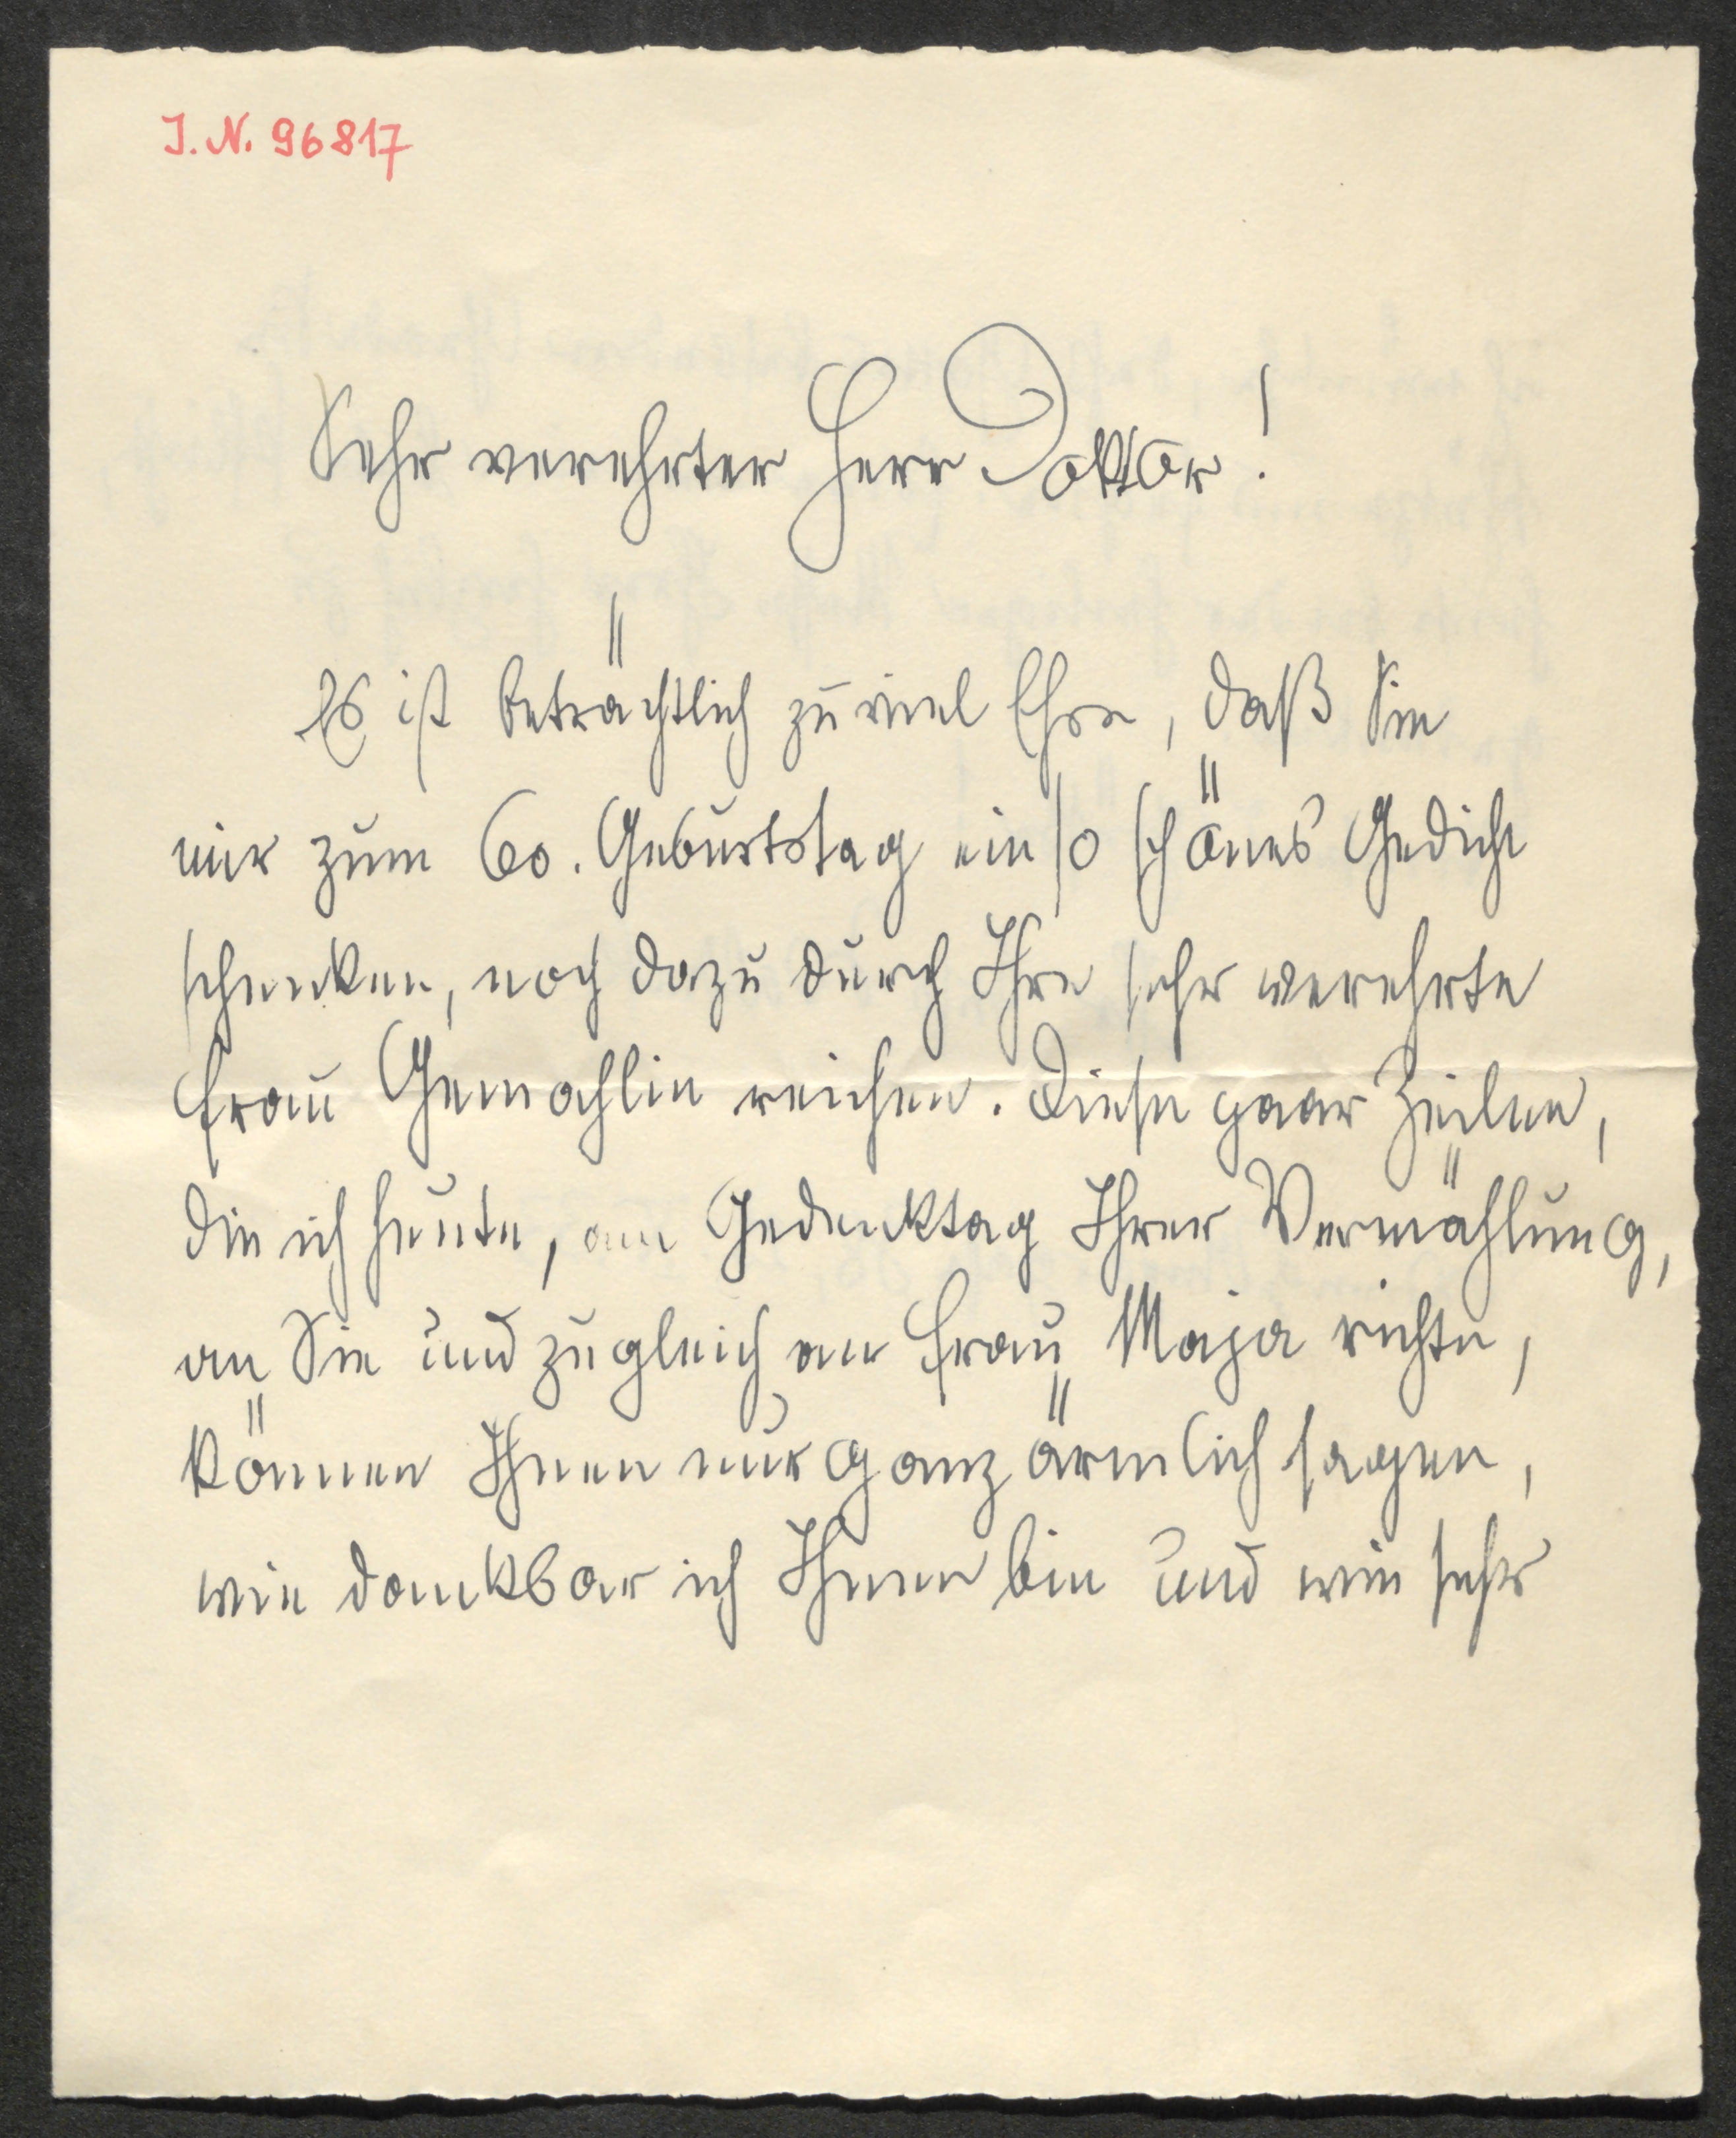 J. N. 96817
Sehr verehrter Herr Doktor!
Es ist beträchtlich zu viel Ehre, daß Sie
mir zum 60. Geburtstag ein so schönes Gedicht
schenken, noch dazu durch Ihre sehr verehrte
Frau Gemahlin reichen. Diese paar Zeilen,
die ich heute, am Gedenktag Ihrer Vermählung,
an Sie und zugleich an Frau Maja richte,
können Ihnen nur ganz ärmlich sagen,
wie dankbar ich Ihnen bin und wie sehr